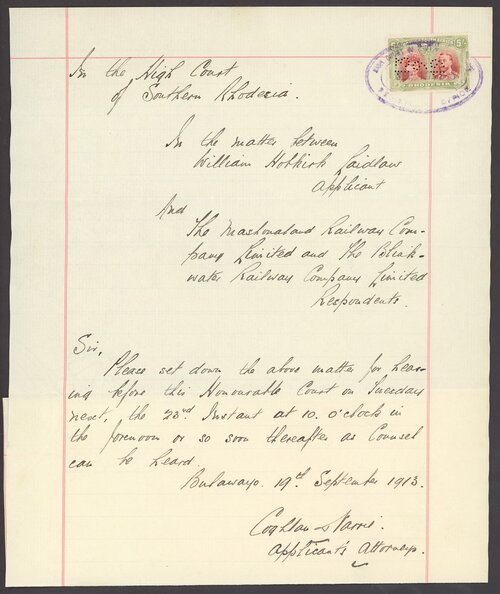 In the High Court
of Southern Rhodesia.
In the matter between
William Hobkirk Laidlaw
Applicant
And
The Mashonaland Railway Com-
pany Limited and The Blink-
water Railway Company Limited
Respondents.
Sir,
Please set down the above matter for hear-
ing before this Honourable Court on Tuesday
next, the 23rd Instant at 10. o'clock in
the forenoon or so soon thereafter as Counsel
can be heard.
Bulawayo. 19th September 1913.
Coghlan & Harris.
Applicant's Attorneys.
RHODESIA